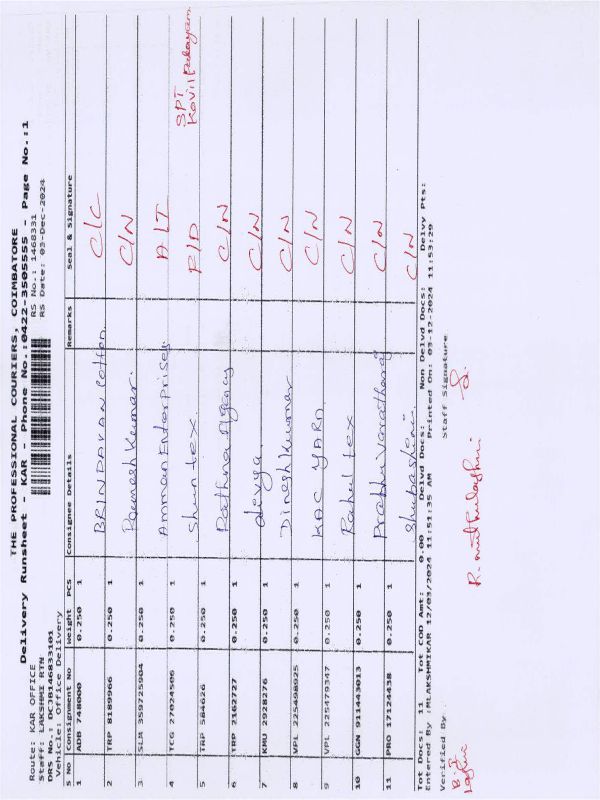 THE PROFESSIONAL COURIERS, COIMBATORE
Delivery Runsheet - KAR - Phone No.:0422-3505555 - Page No.:1
Route: KAR OFFICE RS No.: 1468331
Staff: LAKSHMI RTN RS Date: 03-Dec-2024
DRS No.: DCJB146833101
Vehicle: Office Delivery
S No Consignment No Weight PCS Consignee Details Remarks Seal & Signature
1 ADB 748000 0.250 1 BRINDAVAN Cotton C/C
2 TRP 8189966 0.250 1 Parmesh Kumar. C/N
3 SLM 359725904 0.250 1 Amman Enterprises A/T
4 TCG 27024506 0.250 1 Shun tex P/D SPT Kovil Palayam
5 TRP 584626 0.250 1 Rathna Agency C/N
6 TRP 2162727 0.250 1 divya. C/N
7 KMU 2928276 0.250 1 Dinesh Kumar C/N
8 VPL 225498925 0.250 1 KAC YARN C/N
9 VPL 225479347 0.250 1 Rahul tex C/N
10 GGN 911443013 0.250 1 Prabhu Varatharaj C/N
11 PRO 17124438 0.250 1 Shubashini C/N
Tot Docs: 11 Tot COD Amt: 0.00 Delvd Docs: Non Delvd Docs: Delvy Pts:
Entered By :MLAKSHMIKAR 12/03/2024 11:51:35 AM Printed On: 03-12-2024 11:53:29
Verified By Staff Signature